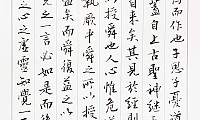 而作也子思子憂道
蓋自上古聖神継天
自来矣其見於經則
授舜也人心惟危道
執厥中者舜之所以授
盡矣而舜復益之以
之一言必如是而後
之心之虛靈知覺一